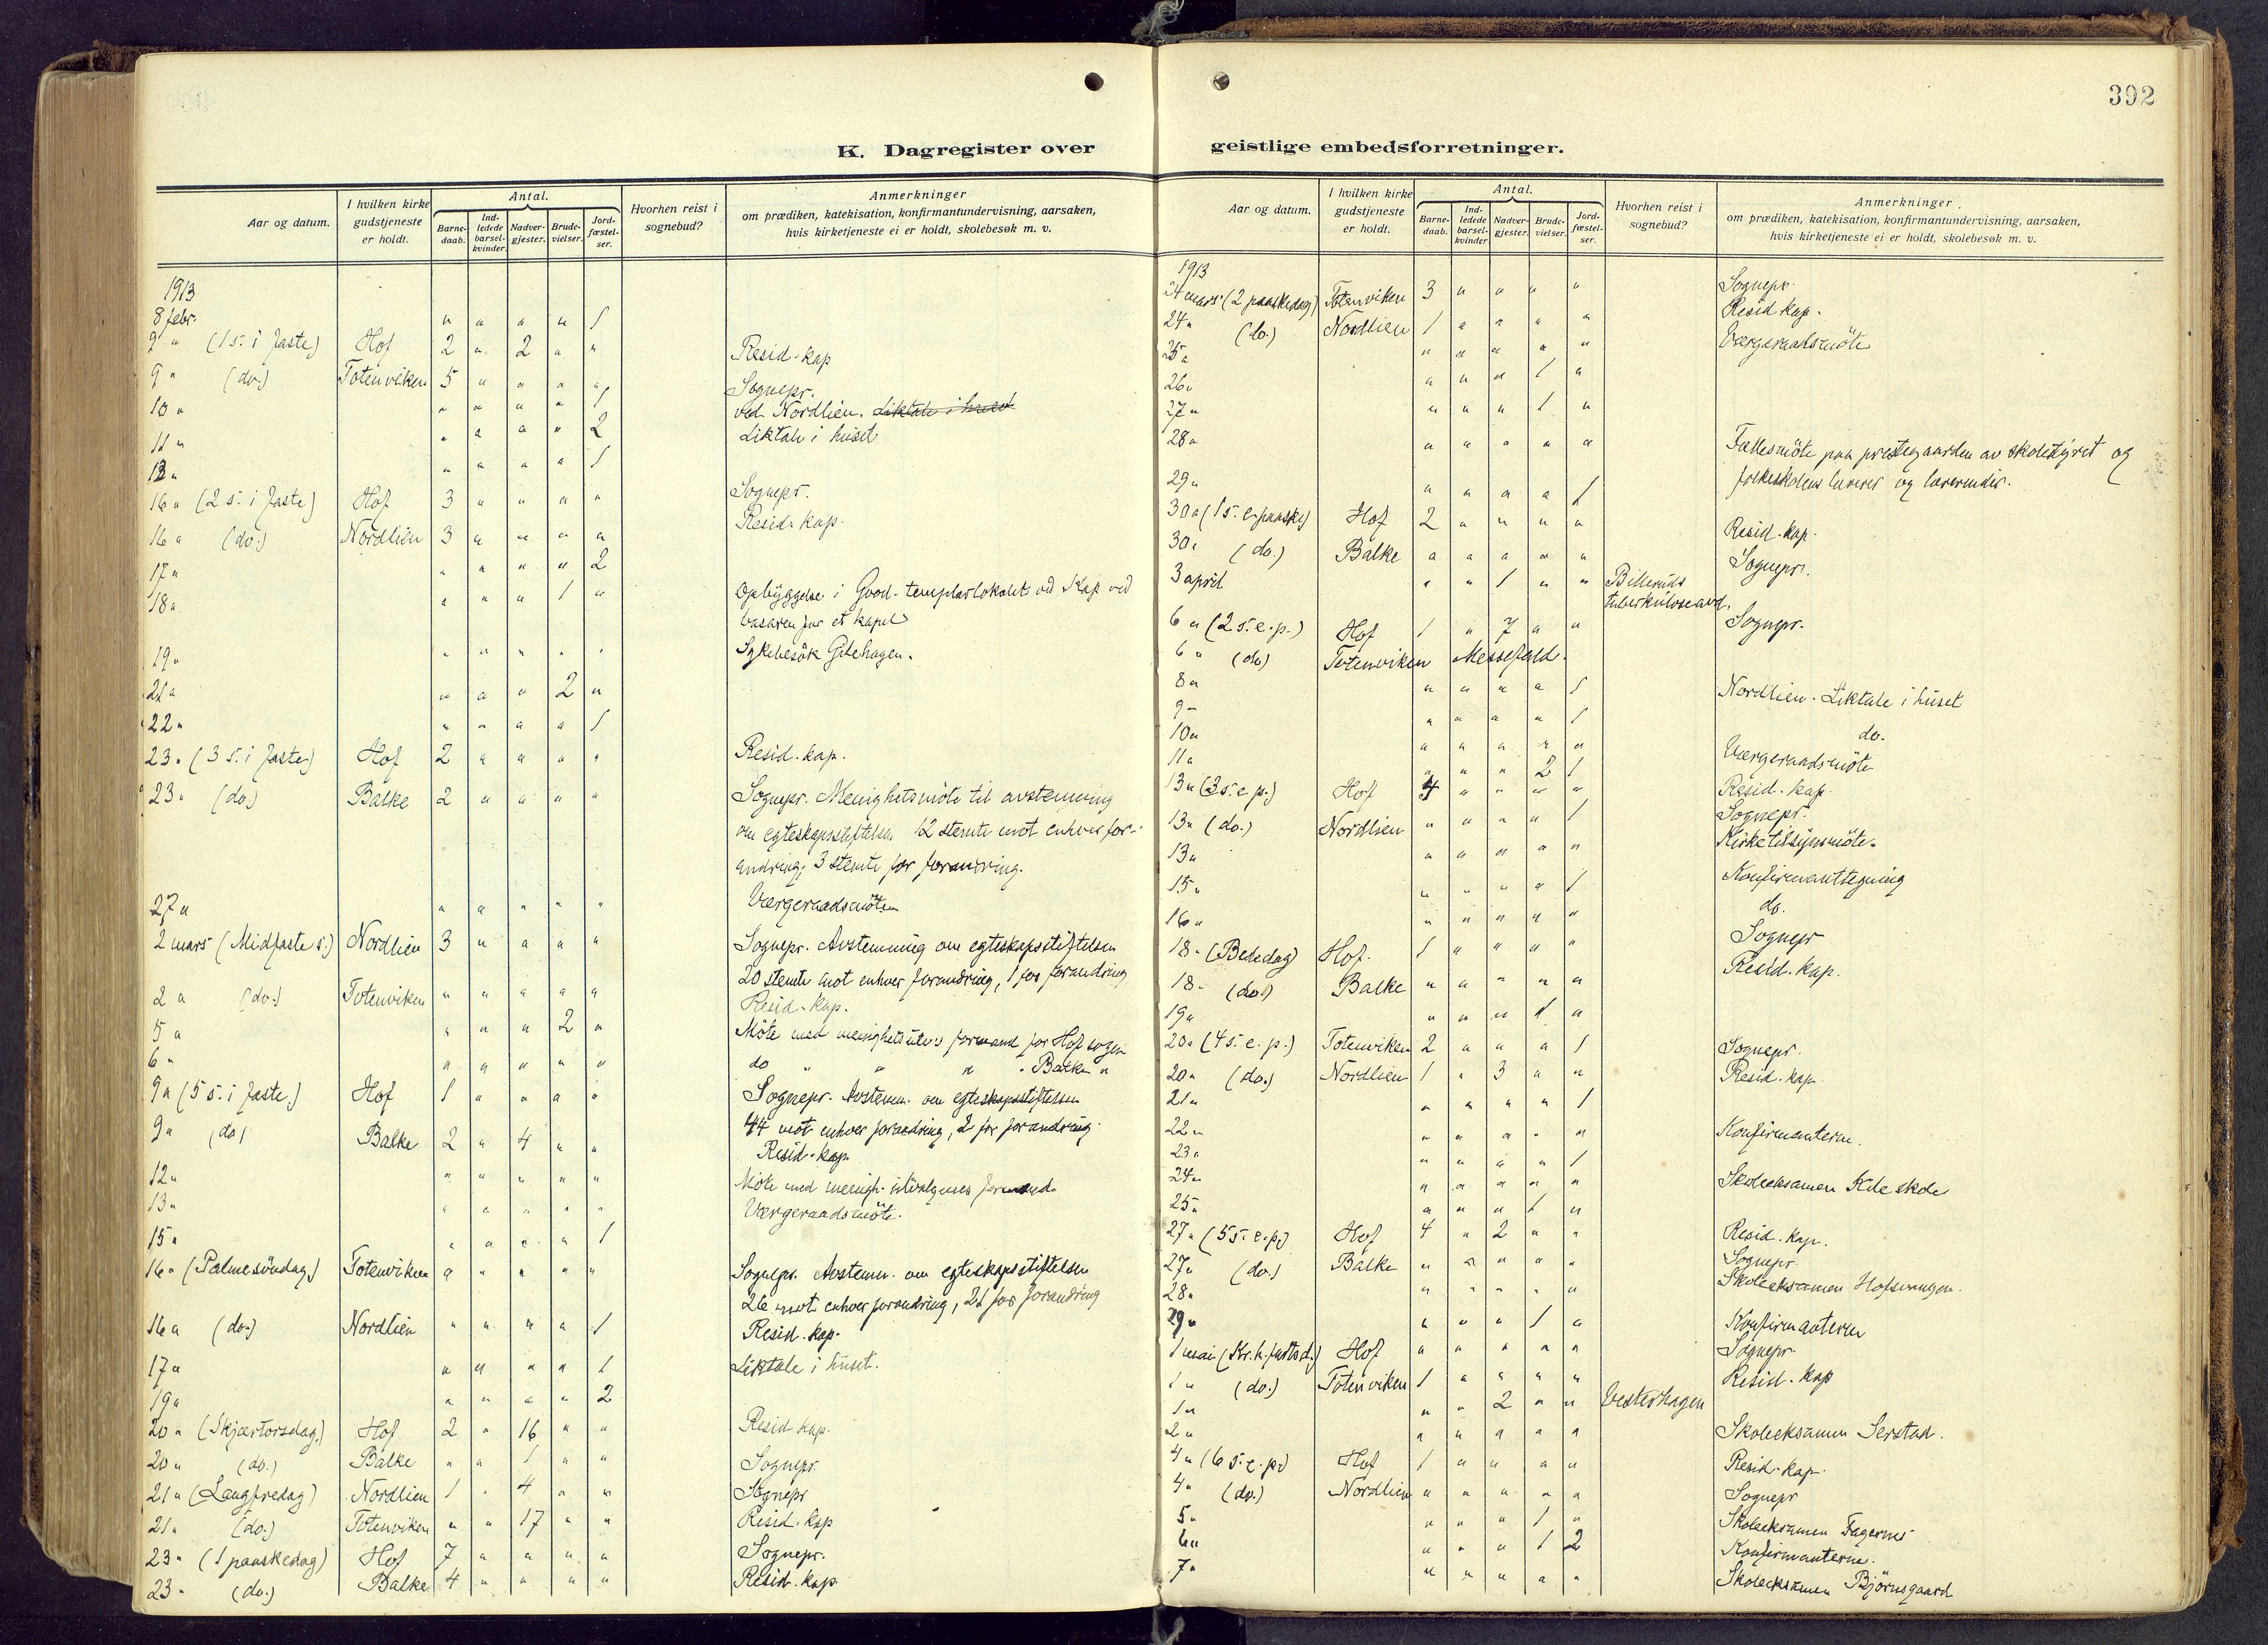 392
K. Dagregister over geistlige embedsforretninger.
Aar og datum. I hvilken kirke gudstjeneste er holdt. Antal. Barne-daab. Ind-ledede barsel-kvinder. Nadver-gjester. Brude-vielser. Jord-fæstel-ser. Hvorhen reist i sognebud? Anmerkninger om prædiken, katekisation, konfirmantundervisning, aarsaken, hvis kirketjeneste ei er holdt, skolebesøk m. v.
1913
8 febr. " " " " 1
9 " (1 s. i faste) Hof 2 " 2 " " Resid. kap
9 " (do.) Totenviken 5 " " " " Sognepr.
10 " " " " " 1 ved Nordlien. Liktale i huset
11 " " " " " 2 Liktale i huset
13 " " " " " 1
16 " (2 s. i faste) Hof 3 " " " " Sognepr.
16 " (do.) Nordlien 3 " " " " Resid. kap.
17 " " " " " 2
18 " " " " 1 " Opbyggelse i Good-templarlokalet ved Kap ved
basaren for et kapel
19 " " " " " " Sykebesök Gilehagen.
21 " " " " 2 "
22 " " " " " 1
23 " (3 s. i faste) Hof 2 " " " " Resid. kap.
23 " (do) Balke 2 " " " " Sognepr. Menighetsmöte til avstemning
om egteskapsstiftelsen 12 stemte mot enhver for-
andring; 3 stemte for forandring.
27 " " " " " " Værgeraadsmöte
2 mars (Midfaste s.) Nordlien 3 " " " " Sognepr. Avstemning om egteskapsstiftelsen
20 stemte mot enhver forandring, 1 for forandring
2 " (do.) Totenviken " " " " " Resid. kap.
5 " " " " 2 " Möte med menighetsutv. formand for Hof sogn
6 " " " " " " do " " " Balke "
9 " (5 s. i faste.) Hof 1 " " " " Sognepr. Avstemn. om egteskapsstiftelsen
44 mot enhver forandring, 2 for forandring.
9 " (do) Balke 2 " 4 " " Resid. kap.
12 " " " " " " Möte med menigh. utvalgenes formænd.
13 " " " " " " Værgeraadsmöte.
15 " " " " " 1
16 " (Palmesöndag) Totenviken " " " " " Sognepr. Avstemn. om egteskapsstiftelsen
26 mot enhver forandring, 21 for forandring
16 " (do.) Nordlien " " " " 1 Resid. kap.
17 " " " " " 1 Liktale i huset.
19 " " " " " 2
20 " (Skjærtorsdag.) Hof 2 " 16 " " Resid. kap.
20 " (do.) Balke " " 1 " " Sognepr.
21 " (Langfredag) Nordlien 1 " 4 " " Sognepr
21 " (do.) Totenviken " " 17 " " Resid. kap
23 " (1 paaskedag) Hof 7 " " " " Sognepr.
23 " (do.) Balke 4 " " " " Resid. kap.
geistlige embedsforretninger.
Aar og datum. I hvilken kirke gudstjeneste er holdt. Antal. Barne-daab. Ind-ledede barsel-kvinder Nadver-gjester. Brude-vielser. Jord-fæstel-ser. Hvorhen reist i sognebud? Anmerkninger om prædiken, katekisation, konfirmantundervisning, aarsaken, hvis kirketjeneste ei er holdt, skolebesøk m. v.
1913
24 mars (2 paaskedag) Totenviken 3 " " " " Sognepr.
24 " (do.) Nordlien 1 " " " " Resid kap.
25 " " " " " " Værgeraadsmöte
26 " " " " 1 "
27 " " " " 1 "
28 " " " " " " Fællesmöte paa prestegaarden av skolestyret og
folkeskolens lærere og lærerinder.
29 " " " " " 1
30 " (1 s. e. paaske) Hof 2 " " " " Resid. kap.
30 " (do.) Balke " " " " " Sognepr.
3 april " " 1 " " Billeruds
tuberkuloseavd.
6 " (2 s. e. p.) Hof 1 " 7 " " Sognepr.
6 " (do) Totenviken Messefald.
8 " " " " " 1 Nordlien. Liktale i huset
9 " " " " " 1 do.
10 " " " " " " Værgeraadsmöte
11 " " " " 2 1
13 " (3 s. e. p.) Hof 4 " " " " Resid. kap.
13 " (do.) Nordlien " " " " 1 Sognepr.
13 " " " " " " Kirketilsynsmöte.
15 " " " " " 1 Konfirmanttegning
16 " " " " " " do.
18 " (Bededag) Hof. 1 " " " " Sognepr
18 " (do.) Balke " " " " " Resid. kap.
19 " " " " 1 "
20 " (4 s. e. p.) Totenviken 2 " " " 1 Sognepr.
20 " (do.) Nordlien 1 " 3 " " Resid. kap
21 " " " " " 1
22 " " " " " " Konfirmanterne.
23 " " " " " 1
24 " " " " " " Skoleeksamen Kile skole
25 " " " " 1 "
27 " (5 s. e. p.) Hof 4 " 2 " " Resid. kap.
27 " (do.) Balke " " " " " Sognepr.
28 " " " " " " Skoleeksamen Hofsvangen.
29 " " " " 1 " Konfirmanterne
1 mai (Kr. h. fartsd.) Hof " " " " " Sognepr.
1 " (do.) Totenviken 1 " " " " Resid. kap
1 " " " 2 " " Vesterhagen
2 " " " " " " Skoleeksamen Serstad.
4 " (6 s. e. p.) Hof 1 " " " " Resid. kap.
4 " (do.) Nordlien " " " " " Sognepr
5 " " " " 1 " Skoleeksamen Fagernes
6 " " " " 1 2 Konfirmanterne.
7 " " " " " " Skoleeksamen Björnsgaard